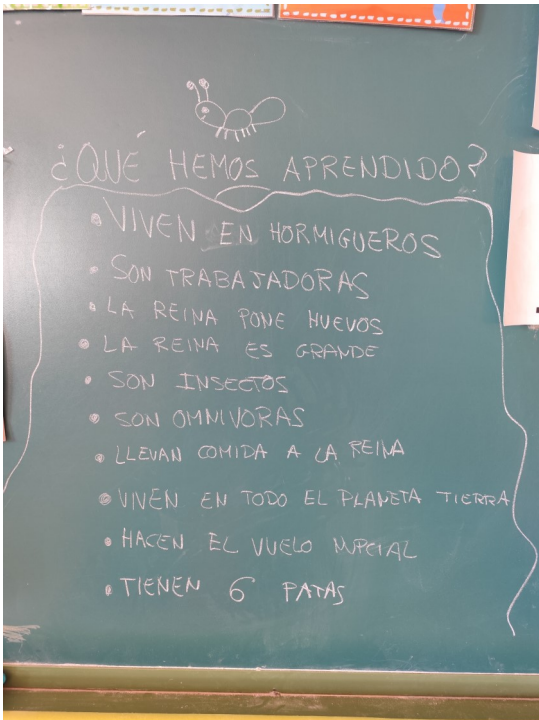 ¿QUÉ HEMOS APRENDIDO?
• VIVEN EN HORMIGUEROS
• SON TRABAJADORAS
• LA REINA PONE HUEVOS
• LA REINA ES GRANDE
• SON INSECTOS
• SON OMNIVORAS
• LLEVAN COMIDA A LA REINA
• VIVEN EN TODO EL PLANETA TIERRA
• HACEN EL VUELO NUPCIAL
• TIENEN 6 PATAS